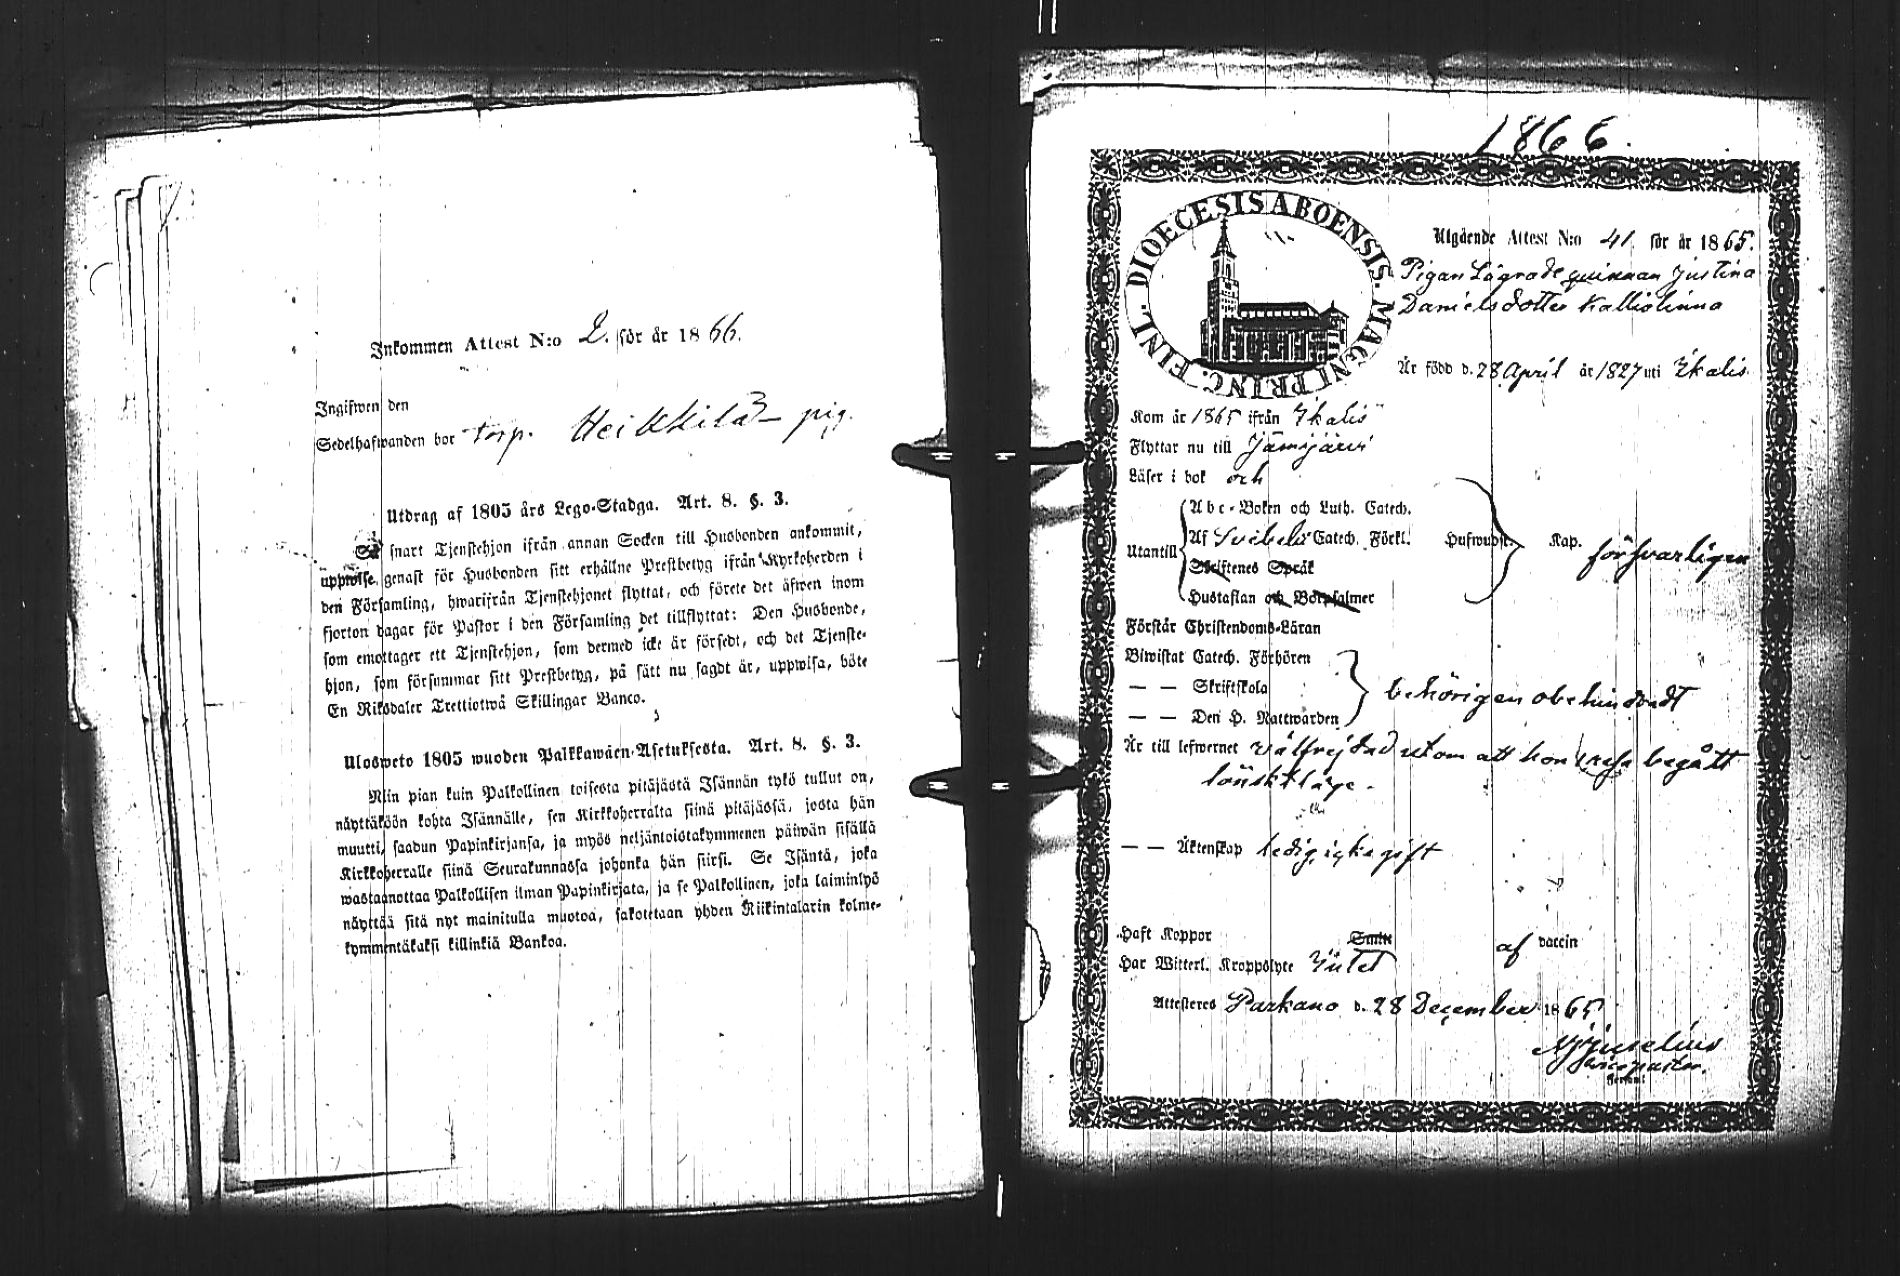 Inkommen Attest N:o 2. för år 1866.
Ingifwen den
Sedelhafwanden bor torp. Heikkilä pig.
Utdrag af 1805 års Lego-Stadga. Art. 8. §. 3.
Så snart Tjenstehjon ifrån annan Socken till Husbonden ankommit,
uppwise genast för Husbonden sitt erhållne Prestbetyg ifrån Kyrkoherden i
den Församling, hwarifrån Tjenstehjonet flyttat, och förete det äfwen inom
fjorton dagar för Pastor i den Församling det tillflyttat: Den Husbonde,
som emottager ett Tjenstehjon, som dermed icke är försedt, och det Tjenste-
hjon, som försummar sitt Prestbetyg, på sätt nu sagdt är, uppwisa, böte
En Riksdaler Trettiotwå Skillingar Banco.
Ulosweto 1805 wuoden Palkkawäen-Asetuksesta. Art. 8. §. 3.
Niin pian kuin Palkollinen toisesta pitäjästä Isännän tykö tullut on,
näyttäköön kohta Isännälle, sen Kirkkoherralta siinä pitäjässä, josta hän
muutti, saadun Papinkirjansa, ja myös neljäntoistakymmenen päiwän sisällä
Kirkkoherralle siinä Seurakunnassa johonka hän siirsi. Se Isäntä, joka
wastaanottaa Palkollisen ilman Papinkirjata, ja se Palkollinen, joka laiminlyö
näyttää sitä nyt mainitulla muotoa, sakotetaan yhden Riikintalarin kolme-
kymmentäkaksi killinkiä Bankoa.
1866.
DIOECESIS ABOENSIS. MAGNI PRINC. FINL.
Utgående Attest N:o 41 för år 1865.
Pigan Lägrade quinnan Justina
Danielsdotter Kalliolinna
Är född d. 28 April år 1827 uti Ikalis
Kom år 1865 ifrån Ikalis
Flyttar nu till Jämijärvi
Läser i bok och
Utantill
Abc-Boken och Luth. Catech.
Af Svebelii Catech. Förkl. Hufwudst. Kap. försvarligen
Skriftenes Språk
Hustaflan och Botpsalmer
Förstår Christendoms-Läran
Biwistat Catech. Förhören
— — Skriftskola behörigen obehindradt
— — Den H. Nattwarden
Är till lefwernet välfrejdad utom att hon begått
lönskaläge.
— — Äktenskap ledig icke gift
Haft Koppor Smitt af vaccin
Har Witterl. Kroppslyte Intet
Attesteres Parkano d. 28 December 1865
Juselius
Vicepastor.